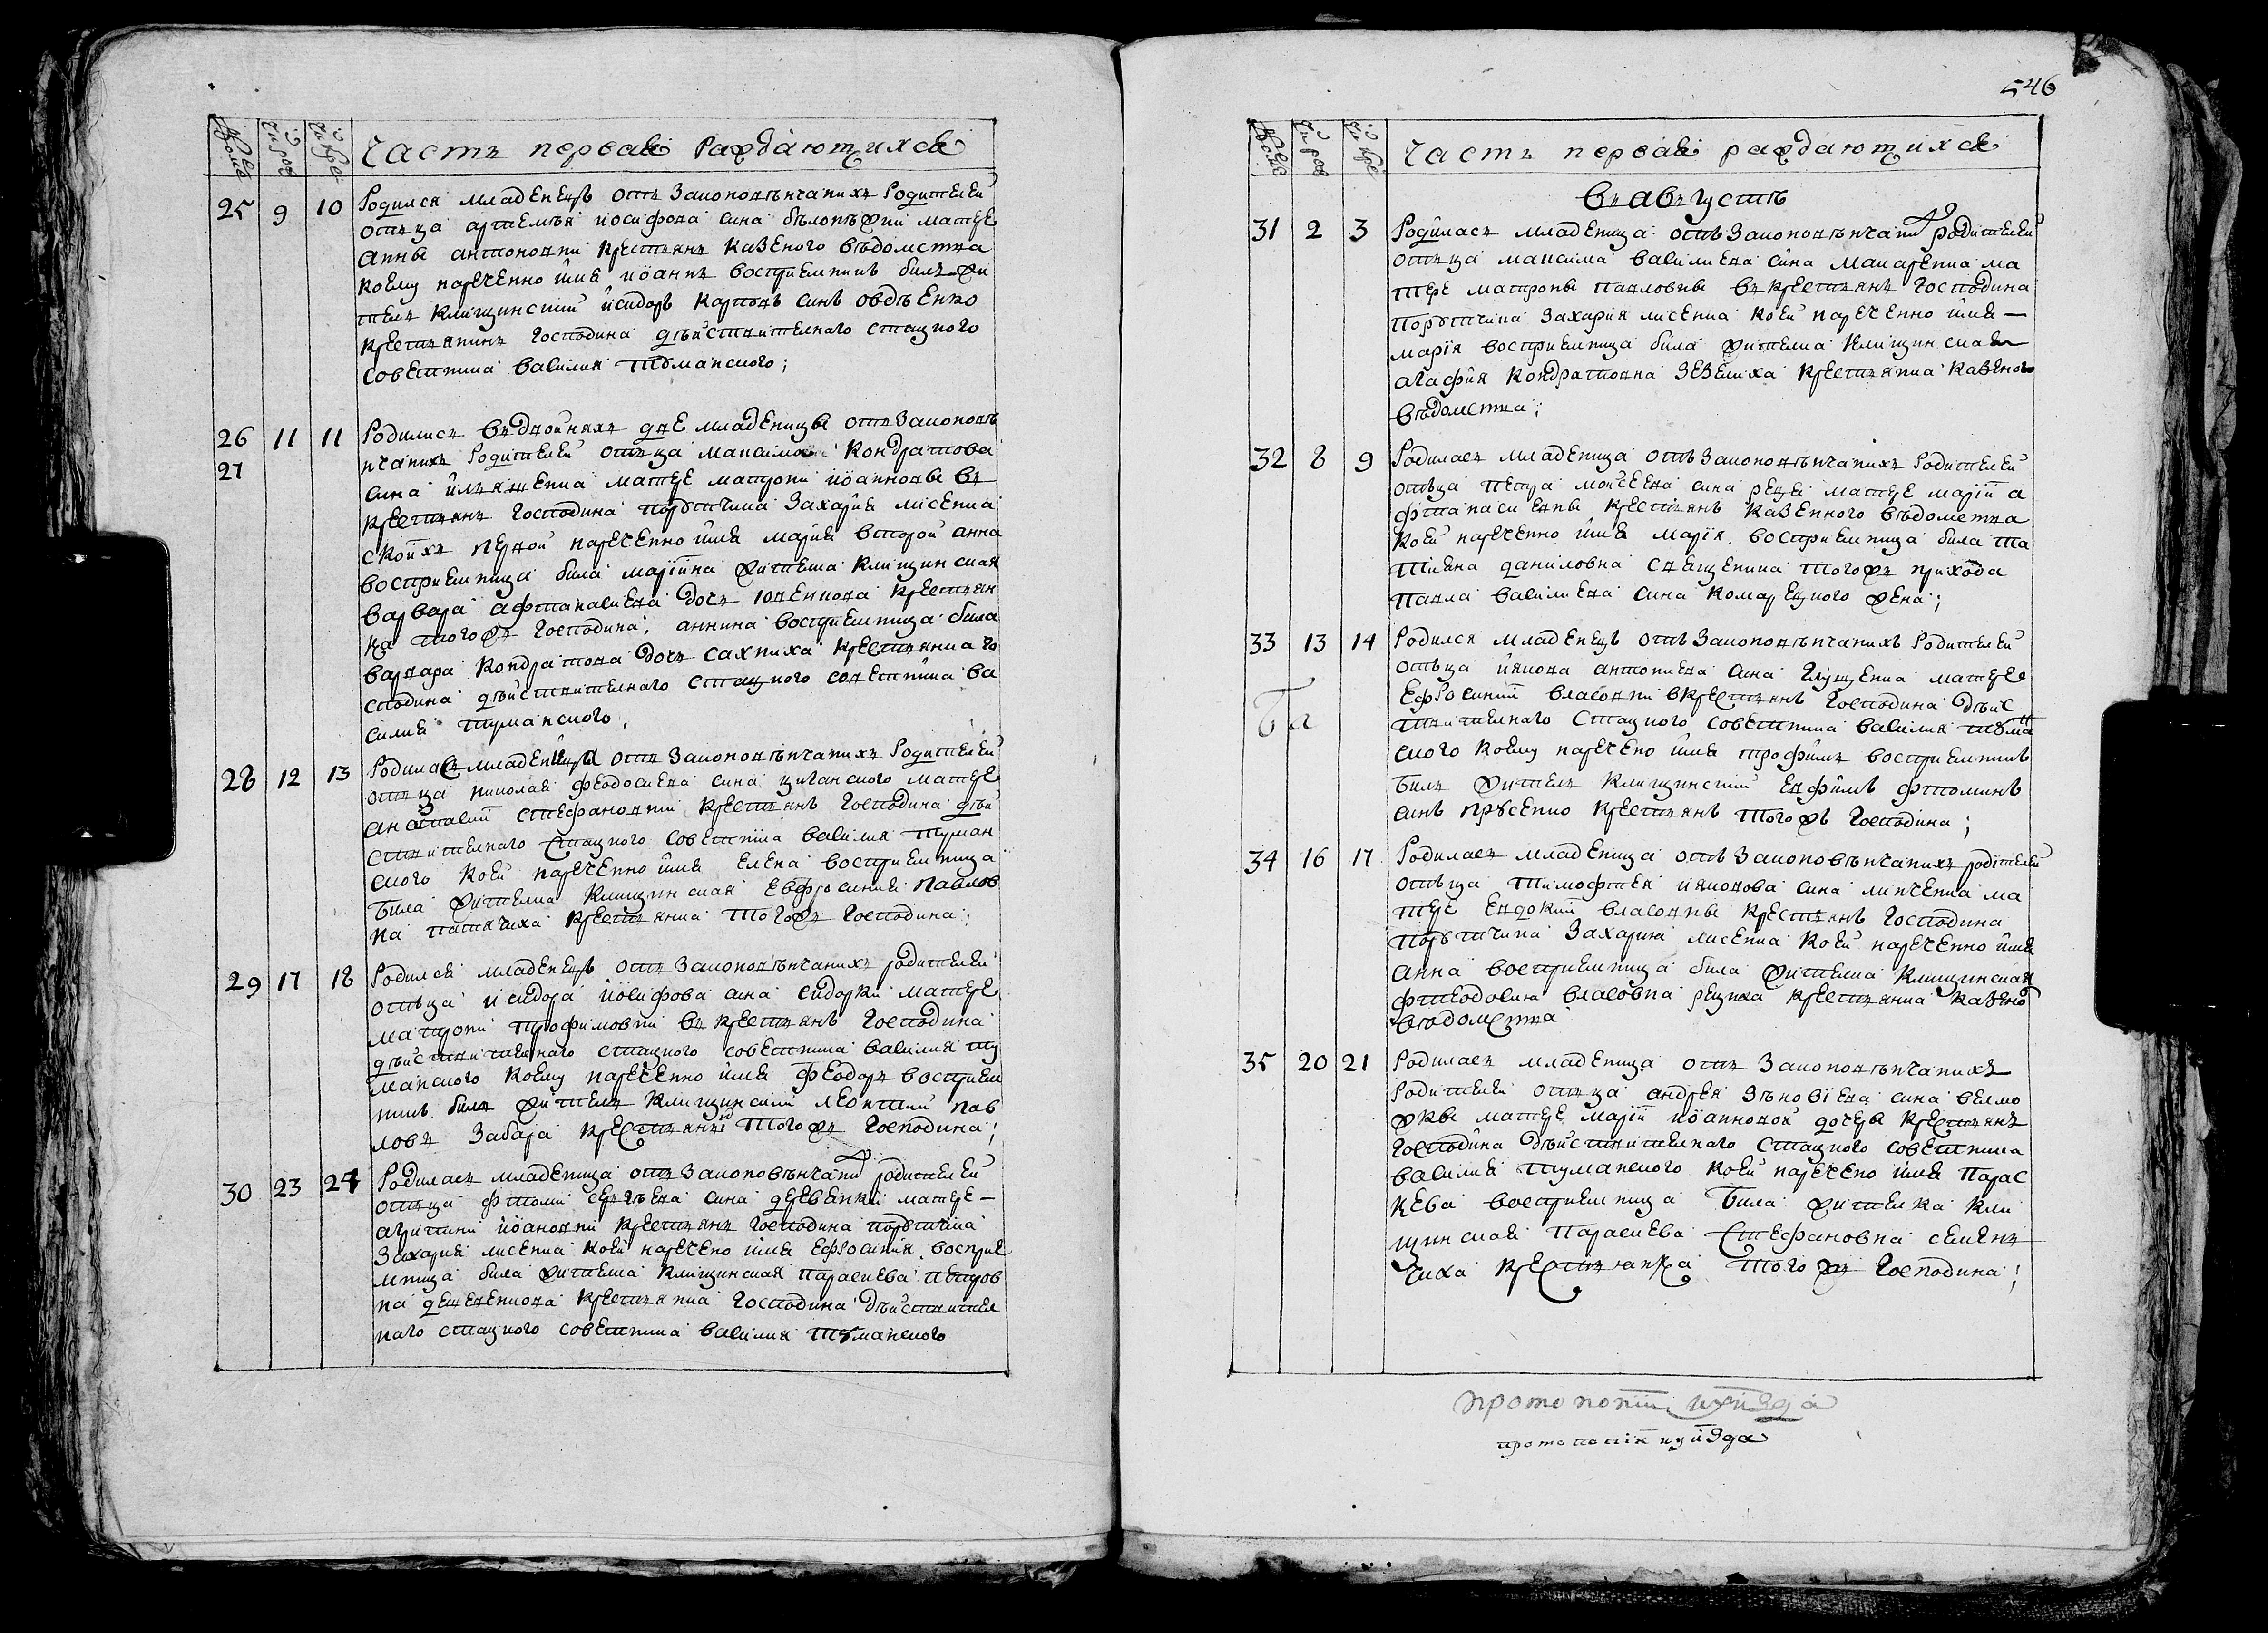 Часть первая раждающихся
25 9 10 Родился младенецъ отъ законовѣнчаних родителей
отъца артемѣя иосифова сина бѣлопѣхии матере
анны антоновни крестъянъ казеного вѣдомства
коему нареченно имя иоанъ восприемникъ билъ жи
тель клищинский исидоръ карповъ синъ овдѣенко
крестъянинъ господина дѣйствителнаго стацкого
советника василия туманского;
26 11 11 Родилися въ двойняхъ две младеници отъ законовѣ
27 нчанихъ родителей отъца максима кондратова
сина илъяшенка матере матрони иоанновы въ
крестъянъ господина поручика захария лисенка
с коихъ первой нареченно имя мария второй анна
восприемница била мариина жителка клищинская
варвара афтанасиева дочъ крестъян
ка того жъ господина; аннина восприемница била
варвара кондратова дочъ сахниха крестъянка го
сподина дѣйствителнаго стацкого советника ва
силия туманского;
28 12 13 Родилася младеница отъ законовѣнчанихъ родителей
отъца николая феодосиева сина циганского матере
анастасии стефановни крестъянъ господина дѣй
ствителнаго стацкого советника василия туман
ского коей нареченно имя елена восприемница
била жителка клищинская евфросиния павлов
на крестъянка того жъ господина;
29 17 18 Родился младенецъ отъ законовѣнчанихъ родителей
отъца исидора иосифова сина сидорки матере
матрони трофимовни въ крестъянъ господина
дѣйствителнаго стацкого советника василия ту
манского коему нареченно имя феодоръ восприем
никъ билъ житель клищинский леонтий пав
ловъ забара крестъянинъ того жъ господина;
30 23 24 Родилася младеница отъ законовѣнчаних родителей
отъца фтоми сергѣева сина деревенки матере
агрипини иоановни крестъянъ господина поручика
захария лисенка коей наречено имя ефросиния восприе
мница била жителка клищинская параскева петров
на крестъянка господина дѣйствител
наго стацкого советника василия туманского
546
Часть первая раждающихся
въ августѣ
31 2 3 Родилася младеница отъ законовѣнчаних родителей
отъца максима василиева сина макаренка ма
тере матроны павловны въ крестъянъ господина
поручика захария лисенка коей нареченно имя
мария восприемница била жителка клищинская
агафия кондратовна зезекиха крестъянка казеного
вѣдомства;
32 8 9 Родилася младеница отъ законовѣнчанихъ родителей
отъца петра моисеева сина реци матере марии а
фтанасиевны крестъянъ казенного вѣдомства
коей нареченно имя мария восприемница била та
тияна даниловна священика того жъ прихода
павла василиева сина комарецкого жена;
33 13 14 Родился младенецъ отъ законовѣнчанихъ родителей
отъца иякова антониева сина глущенка матере
ефросинии власовни в крестъянъ господина дѣйс
твителнаго стацкого советника василия туман
ского коему наречено имя трофимъ восприемникъ
билъ житель клищинский евфимъ фтоминъ
синъ прусенко крестъянъ того жъ господина;
34 16 17 Родилася младеница отъ законовѣнчанихъ родителей
отъца тимофтея ияковова сина липченка ма
тере евдокии власовны крестъянъ господина
поручика захария лисенка коей нареченно имя
анна восприемница била жителка клищинская
фтеодосия власовна рециха крестъянка казеног
вѣдомства
35 20 21 Родилася младеница отъ законовѣнчанихъ
родителей отъца андрея зѣновиева сина велмо
жкы матере марии иоанновой дочеры крестъянъ
господина дѣйствителнаго стацкого советника
василия туманского коей наречено имя парас
кева восприемница била жителка кли
щинская параскева стефановна семень
чиха крестъянка того жъ господина;